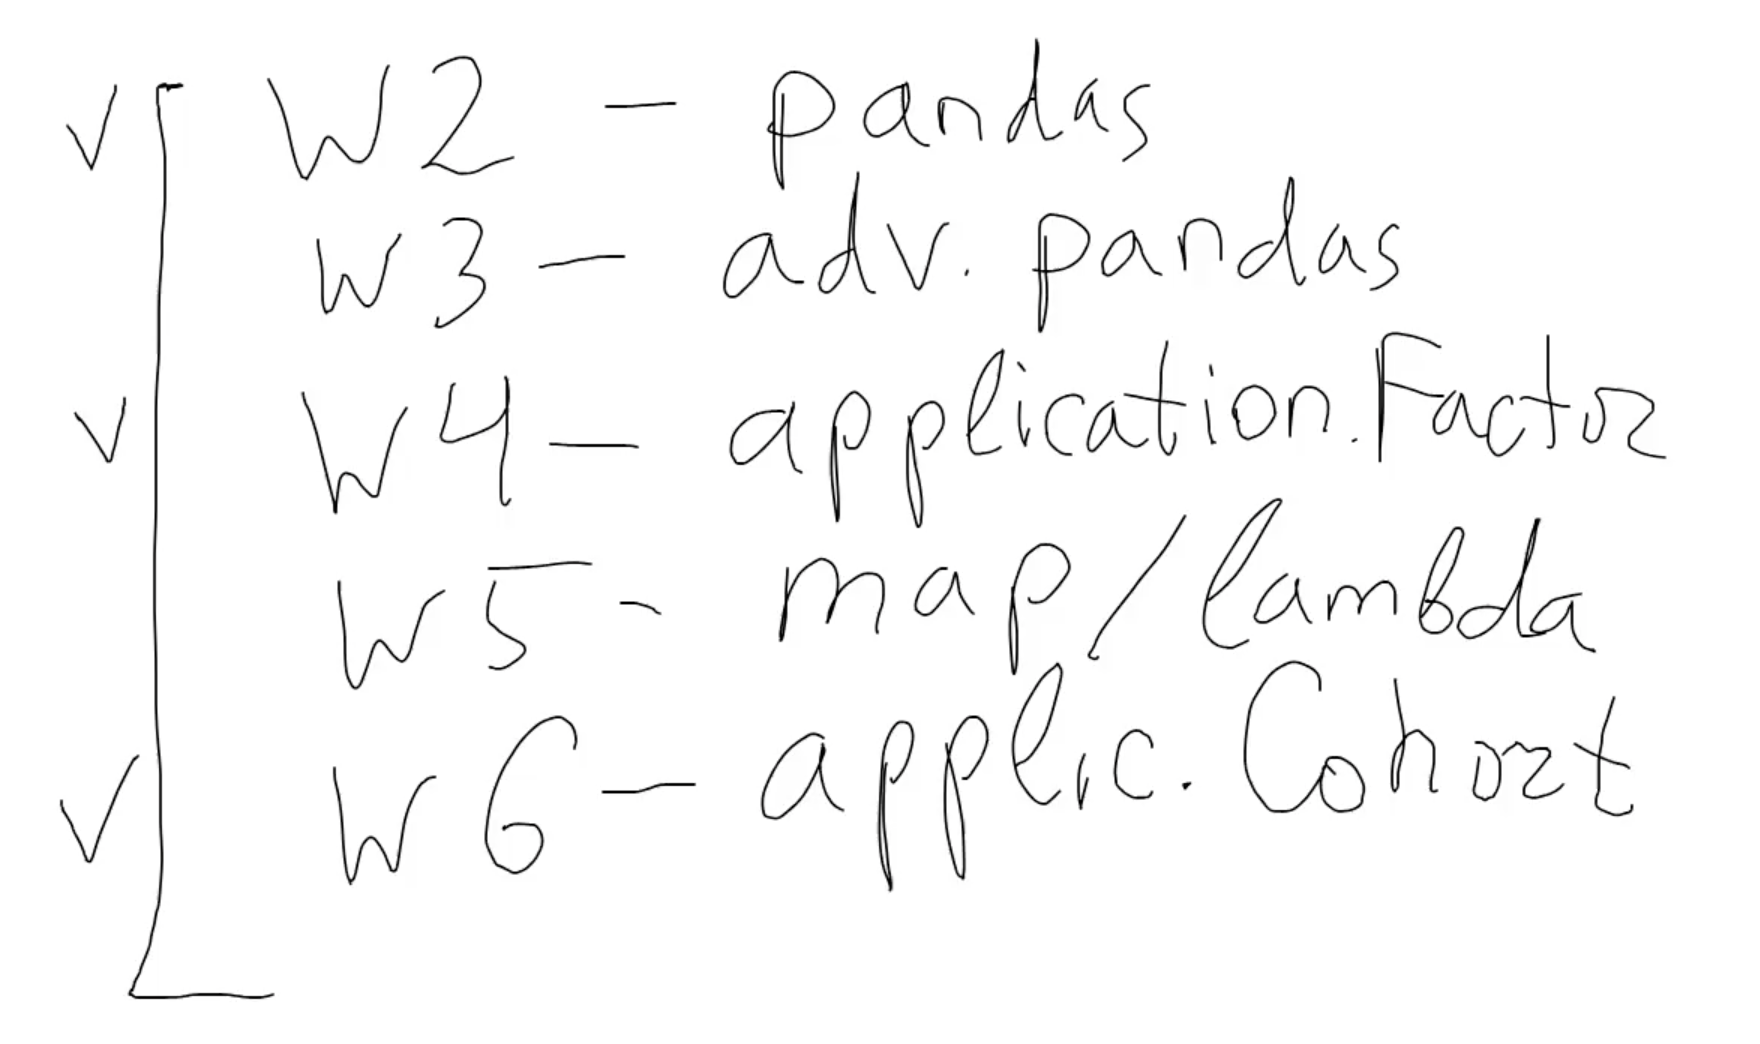 ✓ W2 - pandas
W3 - adv. pandas
✓ W4 - application. Factor
W5 - map/lambda
✓ W6 - applic. Cohort